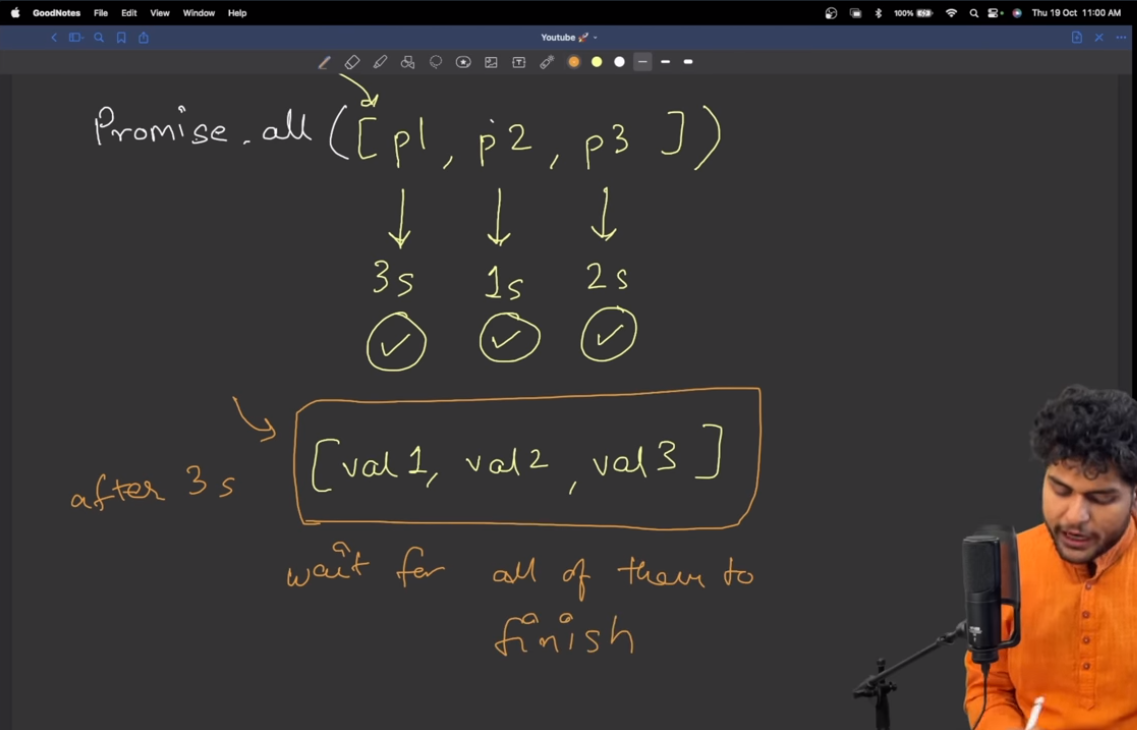 GoodNotes File Edit View Window Help 100% Thu 19 Oct 11:00 AM
Youtube 🚀
Promise.all([p1, p2, p3])
3s 1s 2s
[val 1, val 2, val 3]
after 3s
wait for all of them to
finish